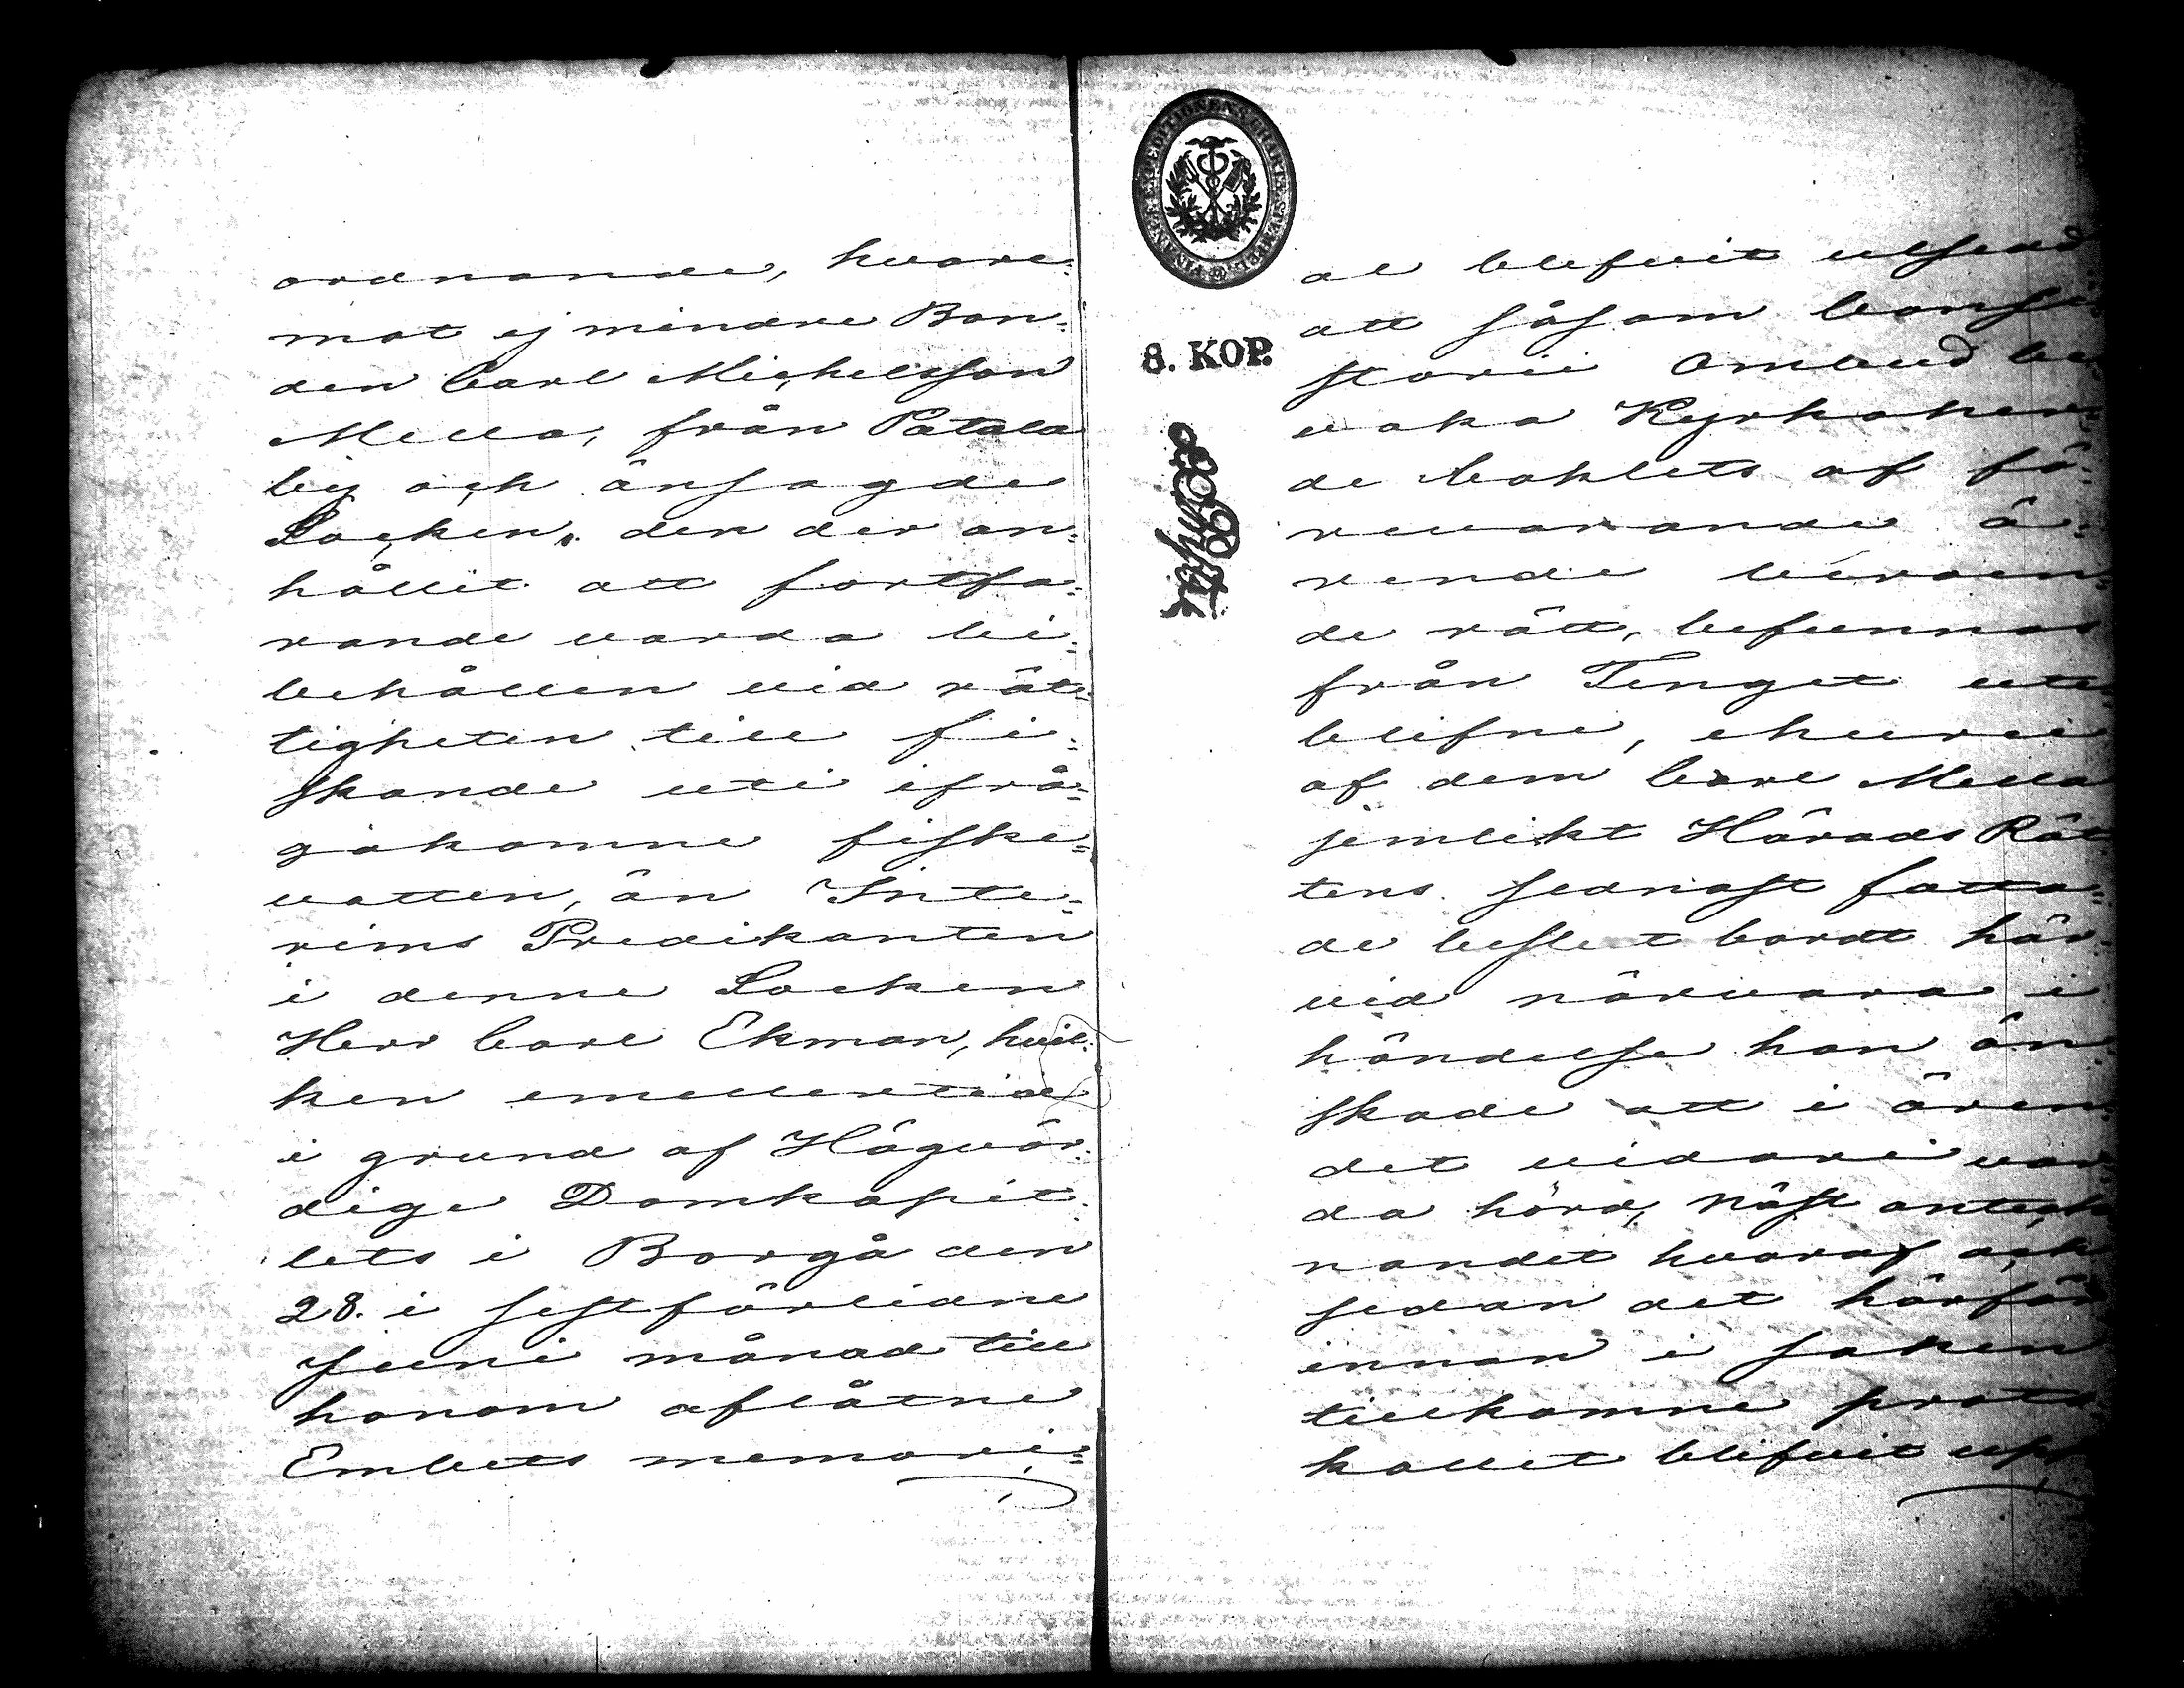 ordnande, hvare=
mot ej mindre Bon=
den Carl Michelsson
Mella, från Patala
by och änsagde
Socken, den der an=
hållit att fortfa=
rande varda bi=
behållen vid rät=
tigheten till fi=
skande uti ifrå=
gakomne fiske=
vatten, än Inte=
rims Predikanten
i denne Socken
Herr Carl Ekman, hvil=
ken emellertid
i grund af Högvör=
dige Domkapit=
lets i Borgå den
28. i sistförlidne
Juni månad till
honom aflåtne
Embets memori=
FINSKA EXPEDITIONENS CHARTÆ STEMPEL
8. KOP.
al blifvit utsedd
att såsom Consi
storii Ombud be
vaka Kyrkoher=
de bohlets af fö=
revarande ä=
rende beroen=
de rätt, befunnos
från Tinget ute
blifne, ehuru
af dem Carl Mella
jemlikt Härads Rät
tens sednast fatta=
de beslut bordt här=
vid närvara i
händelse han ön=
skade att i ären=
det vidare var
da hörd, näst anteck
nandet hvaraf och
sedan det härför
innan i saken
tillkomne proto
kollet blifvit upp